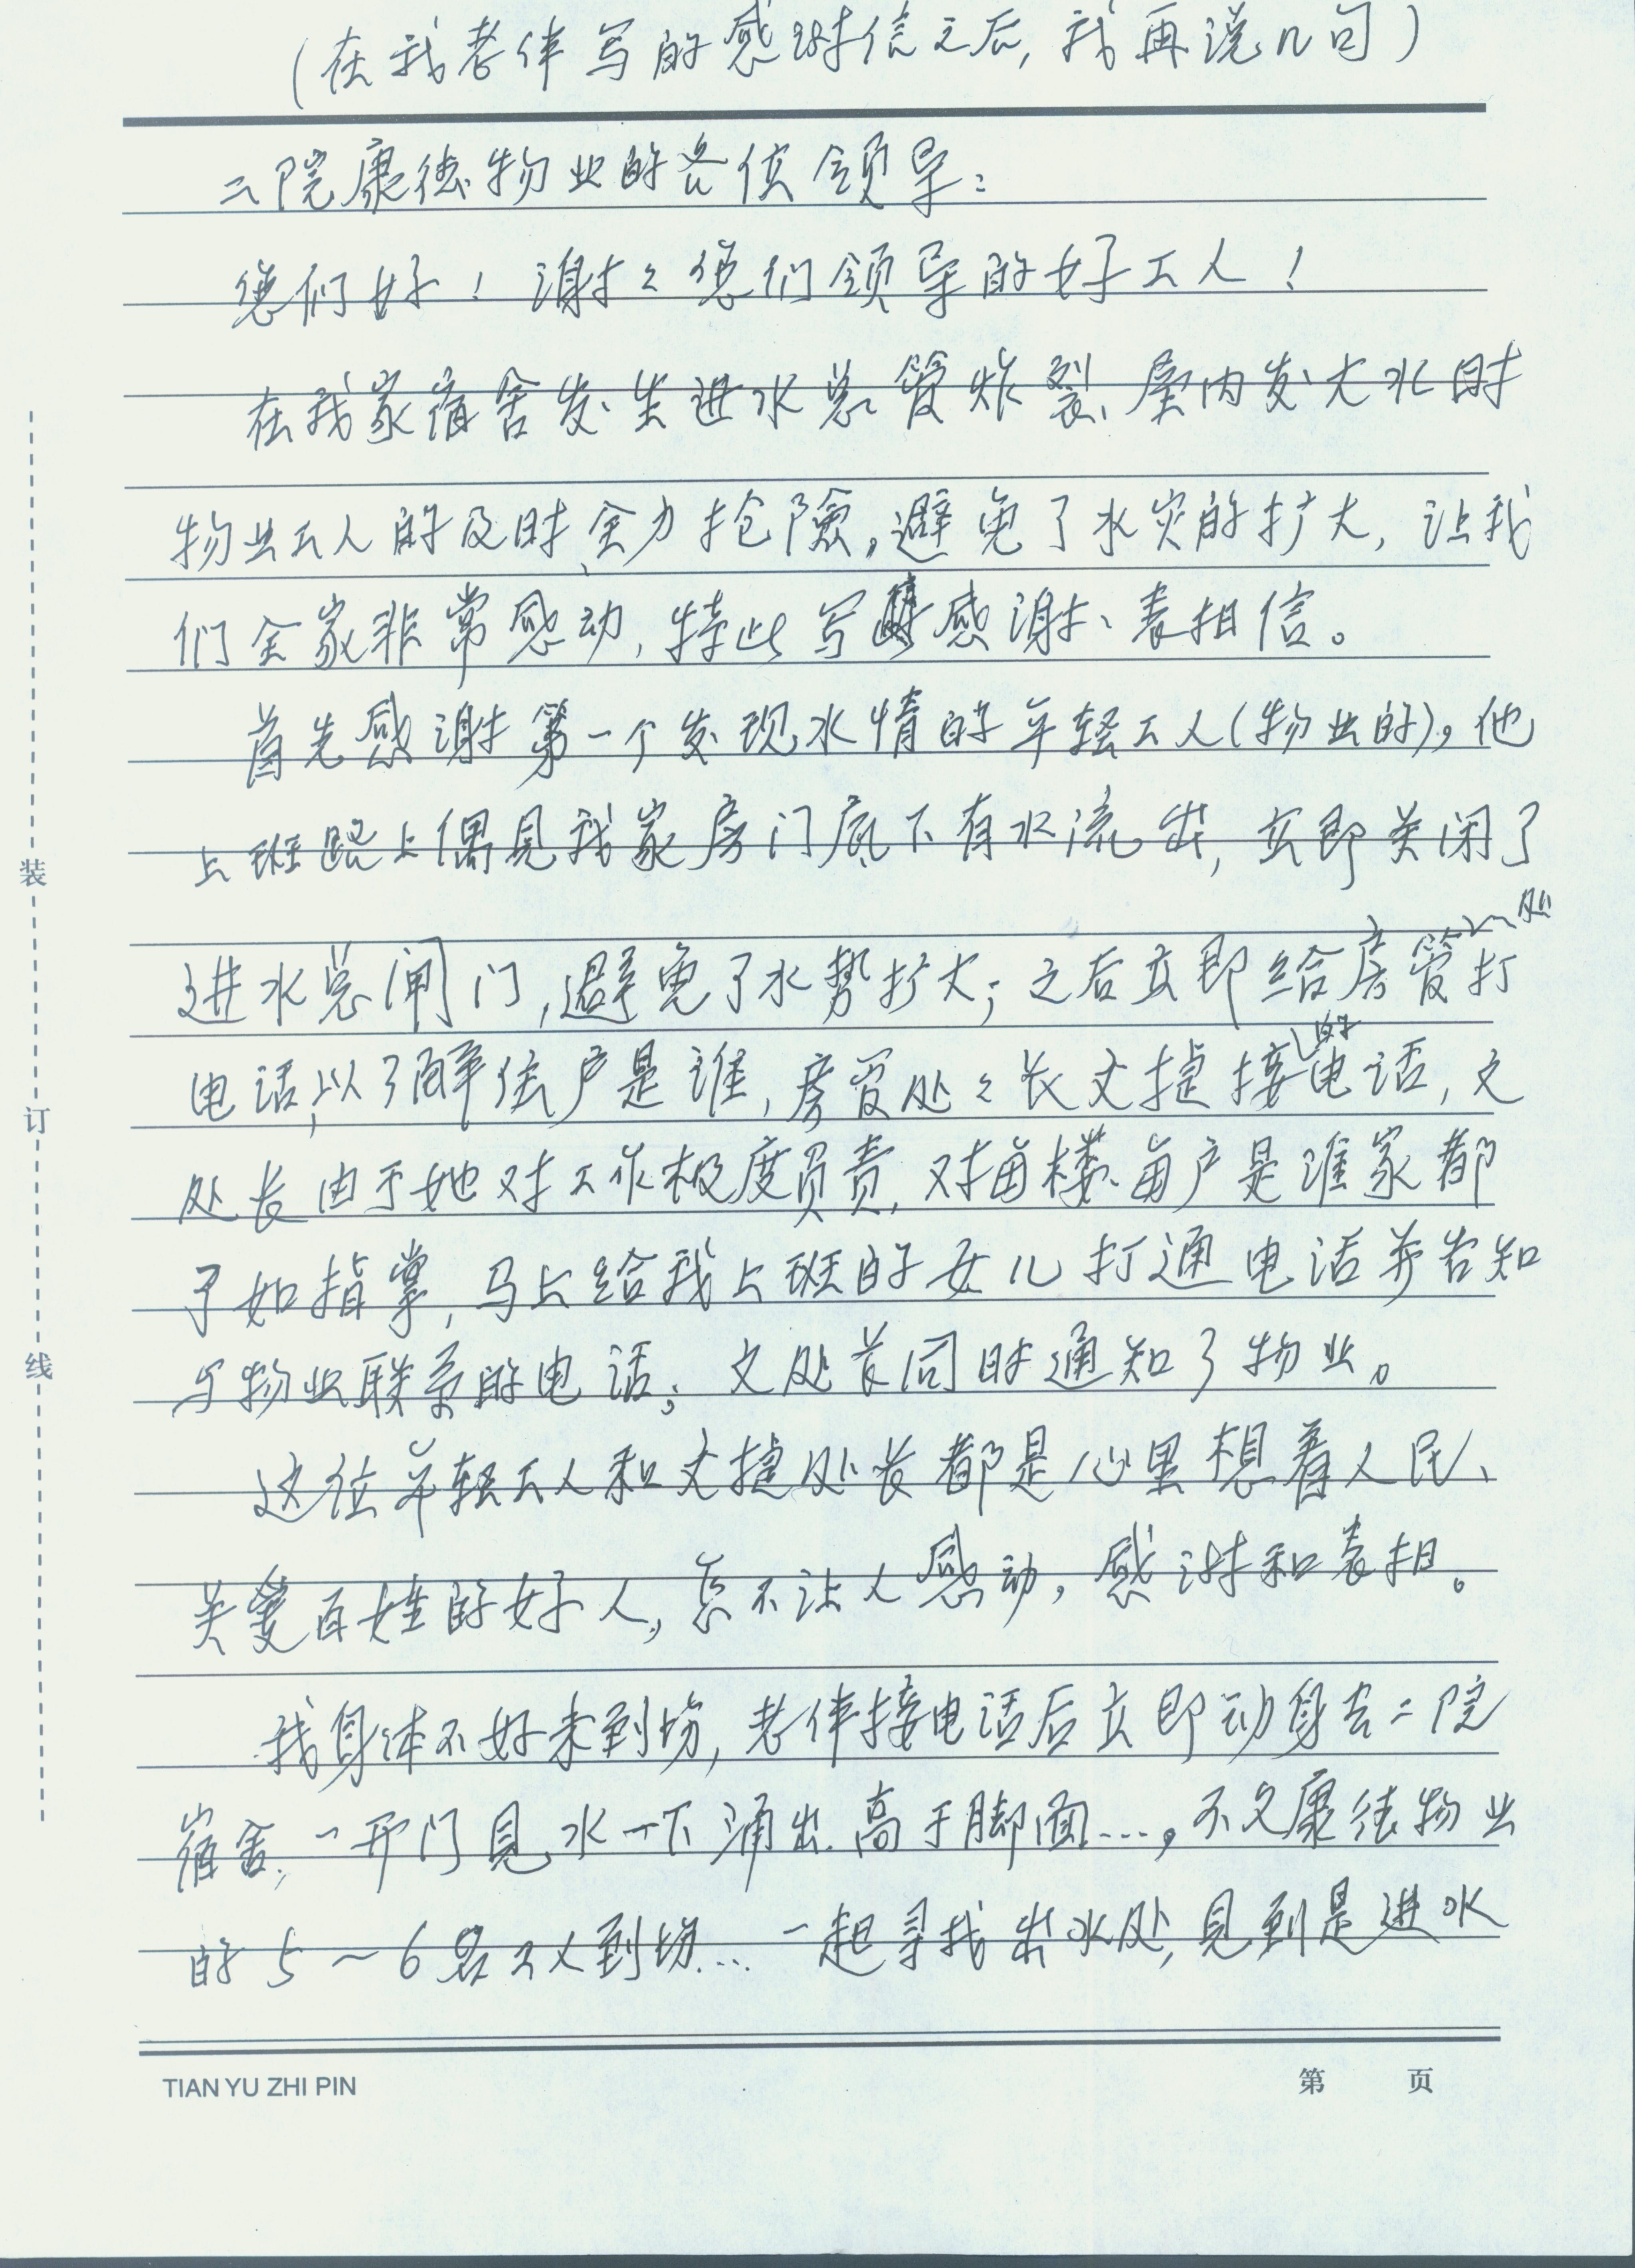 (在我老伴写的感谢信之后,我再说几句)
二院康德物业的各位领导:
您们好!谢谢您们领导的好工人!
在我家宿舍发生进水总管炸裂、屋内发大水时
物业工人的及时、全力抢险,避免了水灾的扩大,让我
们全家非常感动,特此写感谢、表扬信。
首先感谢第一个发现水情的年轻工人(物业的),他
上班路上偶见我家房门底下有水流出,立即关闭了
进水总闸门,避免了水势扩大;之后立即给房管处打
电话,以了解住户是谁,房管处处长文捷接的电话,文
处长由于她对工作极度负责,对每楼、每户是谁家都
了如指掌,马上给我上班的女儿打通电话并告知
与物业联系的电话;文处长同时通知了物业。
这位年轻工人和文捷处长都是心里想着人民、
关爱百姓的好人,怎不让人感动,感谢和表扬。
我身体不好未到场,老伴接电话后立即动身去二院
宿舍,一开门见水一下涌出.高于脚面…,不久康德物业
的5~6名工人到场…一起寻找出水处,见到是进水
装
订
线
TIAN YU ZHI PIN
第 页